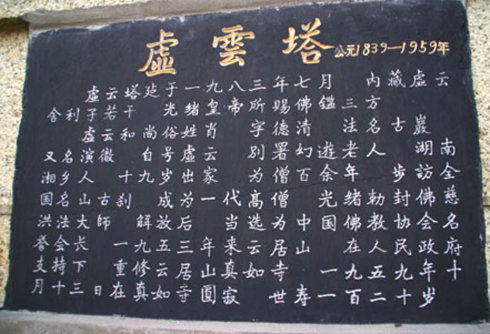 虛雲塔 公元1839—1959年
虛云塔建于一九八三年七月 內藏虛云
舍利子若干 光緒皇帝所賜佛鑑三方
虛云和尚俗姓肖字德清 法名古巖
又名演徹 自号虛云別署幻遊老人 湖南
湘鄉人 十九歲出家為僧百余年步訪全
國名山古刹 成為一代高僧 光緒勅封佛慈
洪法大師 解放后當選為中國佛教協會名
譽會長 一九五三年來云居山 在人民政府
支持下 重修真如寺 一九五九年十
月十三日在真如寺圓寂 世壽一百二十歲